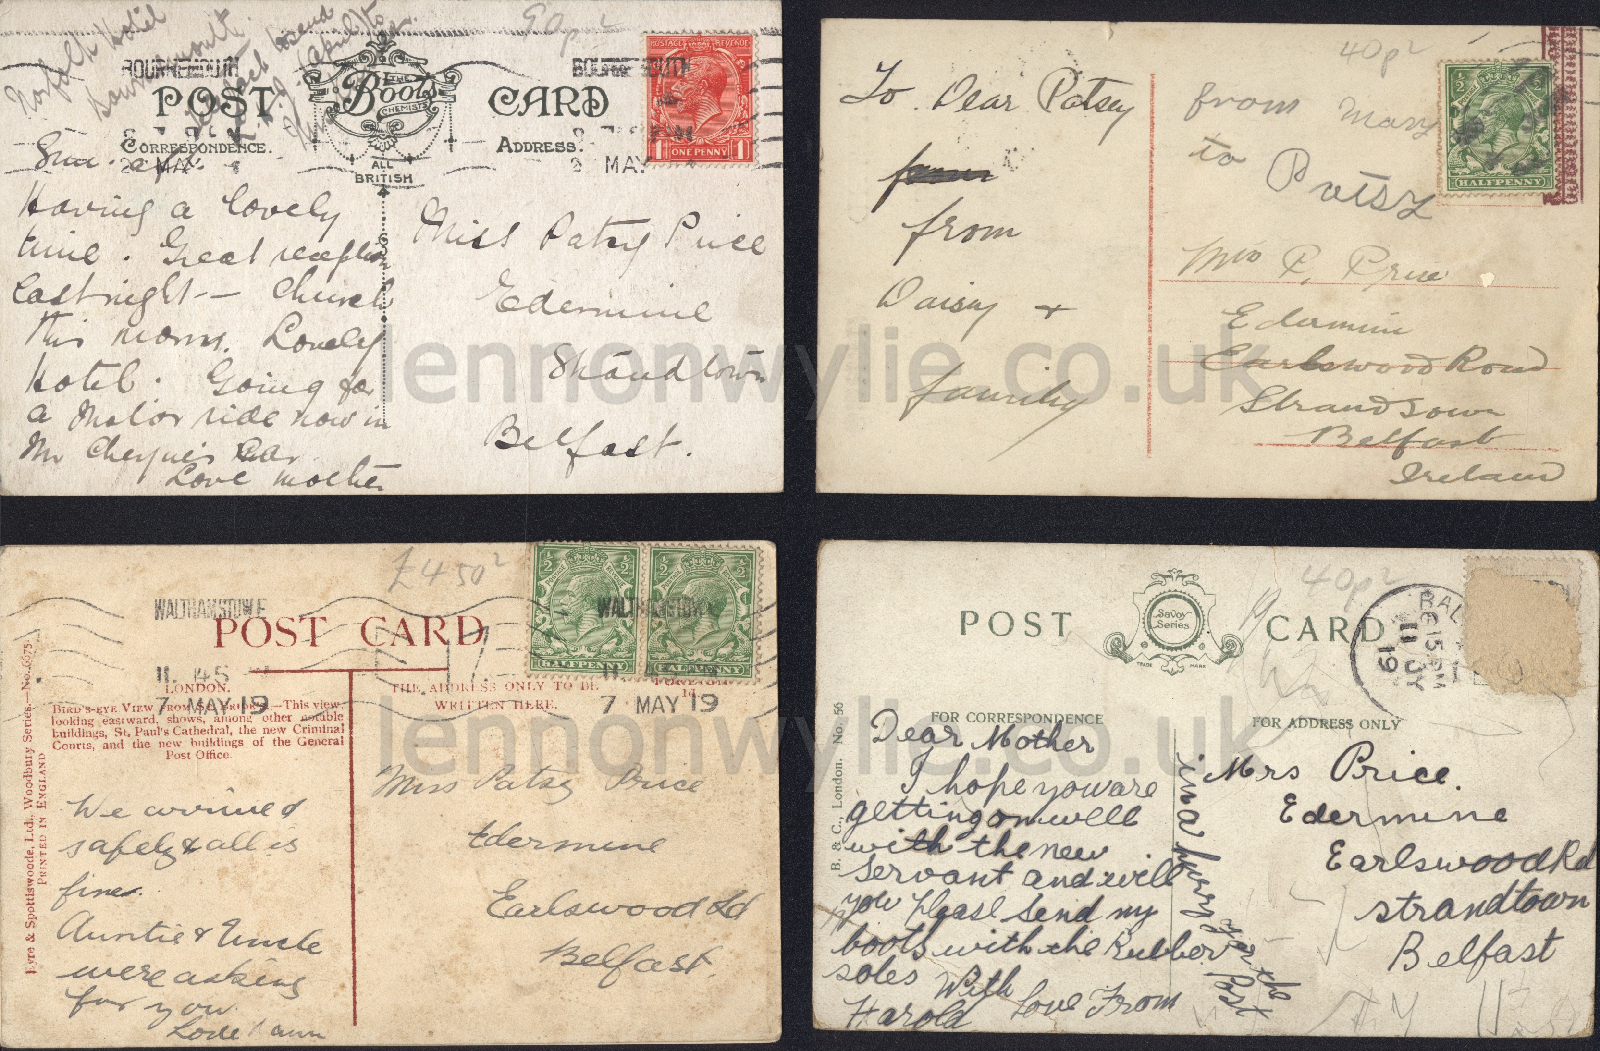 Norfolk Hotel
Bournemouth
90p
BOURNEMOUTH
BOURNEMOUTH
POST CARD
THE
Boots
CHEMISTS
ALL
BRITISH
CORRESPONDENCE.
ADDRESS.
MAY
MAY
POSTAGE REVENUE
1 ONE PENNY 1
Having a lovely
time. Great reception
last night — Church
this morn. Lovely
Hotel. Going for
a motor ride now in
Mr
Love mother
Miss Patsy Price
Edermine
Strandtown
Belfast.
40p
To. Dear Patsey
from
Daisy +
family
from Mary
to Patsy
HALFPENNY
Miss P. Price
Edermine
Earlswood Road
Strandtown
Belfast
Ireland
lennonwylie.co.uk
£4 50
WALTHAMSTOW E
WALTHAMSTOW
POST CARD
HALFPENNY
HALFPENNY
11. 45
7 MAY 19
11. 45
7 MAY 19
LONDON.
BIRD'S-EYE VIEW FROM —This view,
looking eastward, shows, among other notable
buildings, St. Paul's Cathedral, the new Criminal
Courts, and the new buildings of the General
Post Office.
THE ADDRESS ONLY TO BE
WRITTEN HERE.
Eyre & Spottiswoode, Ltd., Woodbury Series.—No. 6675
PRINTED IN ENGLAND
We arrived
safely & all is
fine.
Auntie & Uncle
were asking
for you
Love
Miss Patsy Price
Edermine
Earlswood Rd
Belfast.
40p
POST CARD
Savoy
Series
TRADE MARK
FOR CORRESPONDENCE
FOR ADDRESS ONLY
B. & C., London. No. 56
BAL
15 PM
11 JY
19
Dear Mother
I hope you are
getting on well
with the new
servant and will
you please send my
boots with the Rubber
soles With
Love From
Harold
in a hurry for the
Post
Mrs Price.
Edermine
Earlswood Rd
Strandtown
Belfast
lennonwylie.co.uk